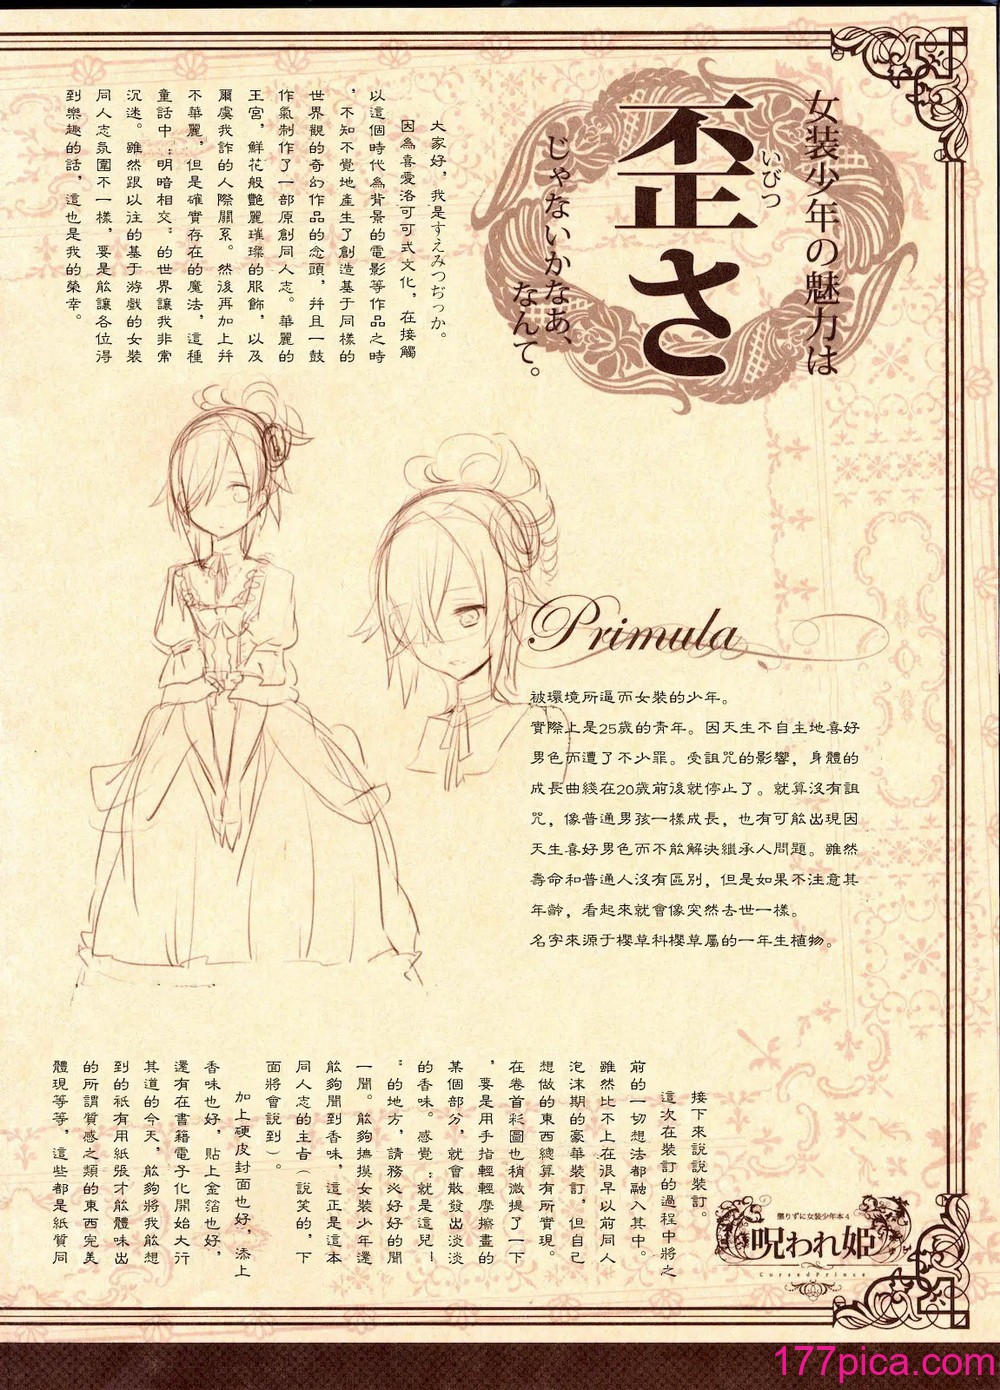 女装少年の魅力は
いびつ
歪さ
じゃないかなあ、
なんて。
大家好，我是すえみつぢっか。
因為喜愛洛可可式文化，在接觸
以這個時代為背景的電影等作品之時
，不知不覺地產生了創造基于同樣的
世界觀的奇幻作品的念頭，并且一鼓
作氣制作了一部原創同人志。華麗的
王宮，鮮花般艷麗璀璨的服飾，以及
爾虞我詐的人際關系。然後再加上并
不華麗，但是確實存在的魔法，這種
童話中：明暗相交〞的世界讓我非常
沉迷。雖然跟以往的基于游戲的女裝
同人志氛圍不一樣，要是能讓各位得
到樂趣的話，這也是我的榮幸。
Primula
被環境所逼而女裝的少年。
實際上是25歲的青年。因天生不自主地喜好
男色而遭了不少罪。受詛咒的影響，身體的
成長曲綫在20歲前後就停止了。就算沒有詛
咒，像普通男孩一樣成長，也有可能出現因
天生喜好男色而不能解決繼承人問題。雖然
壽命和普通人沒有區別，但是如果不注意其
年齡，看起來就會像突然去世一樣。
名字來源于櫻草科櫻草屬的一年生植物。
接下來說說裝訂。
這次在裝訂的過程中將之
前的一切想法都融入其中。
雖然比不上在很早以前同人
泡沫期的豪華裝訂，但自己
想做的東西總算有所實現。
在卷首彩圖也稍微提了一下
，要是用手指輕輕摩擦畫的
某個部分，就會散發出淡淡
的香味。感覺：就是這兒！
〞的地方，請務必好好的聞
一聞。能夠撫摸女裝少年還
能夠聞到香味，這正是這本
同人志的主旨（說笑的，下
面將會說到）。
加上硬皮封面也好，添上
香味也好，貼上金箔也好，
還有在書籍電子化開始大行
其道的今天，能夠將我能想
到的衹有用紙張才能體味出
的所謂質感之類的東西完美
體現等等，這些都是紙質同
懲りずに女装少年本4
呪われ姫
CursedPrince
177pica.com